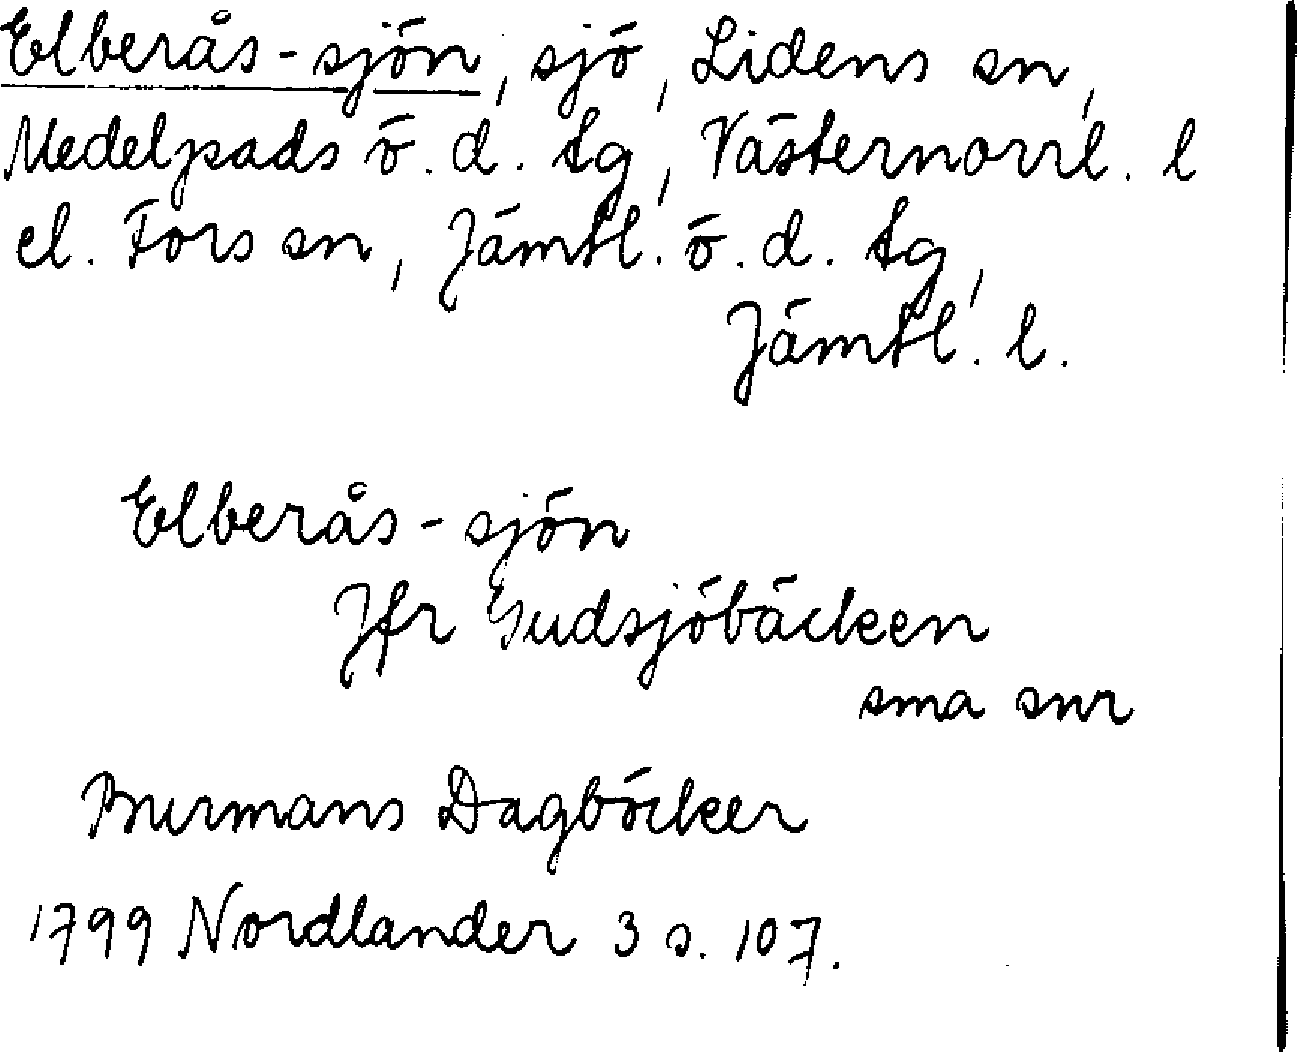 Elberås-sjön, sjö, Lidens sn,
Medelpads ö. d. tg, Västernorrl. l
el. Fors sn, Jämtl. ö. d. tg,
Jämtl. l.
Elberås-sjön
Jfr Gudsjöbäcken
sma snr
Burmans Dagböcker
1799 Nordlander 3 s. 107.